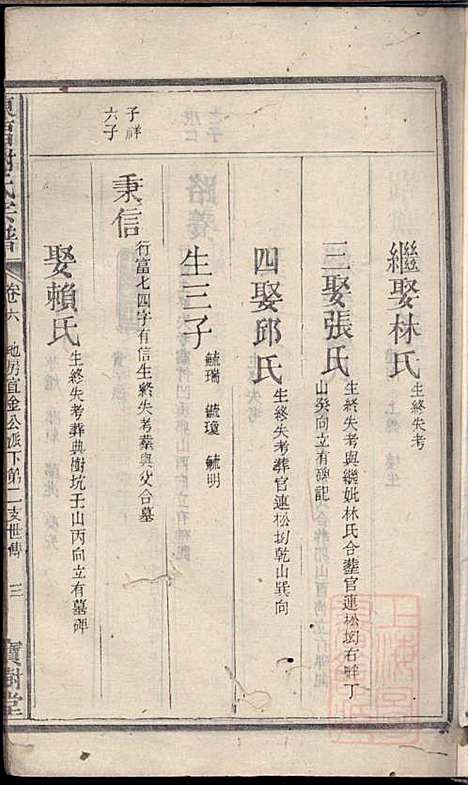 繼娶林氏生終失考
三娶張氏生終失考與繼妣林氏合𦵏官連松㘭右畔丁
山癸向立有碑記
四娶邱氏生終失考葬官連松㘭乾山巽向
生三子毓瑞 毓瓊 毓明
子祥
六子
秉信行富七四字有信生終失考塟與父合墓
娶賴氏生終失考葬典樹坑壬山丙向立有墓碑
氏宗譜
卷六 地房宜金公派下第二支世傳 三
寶樹堂